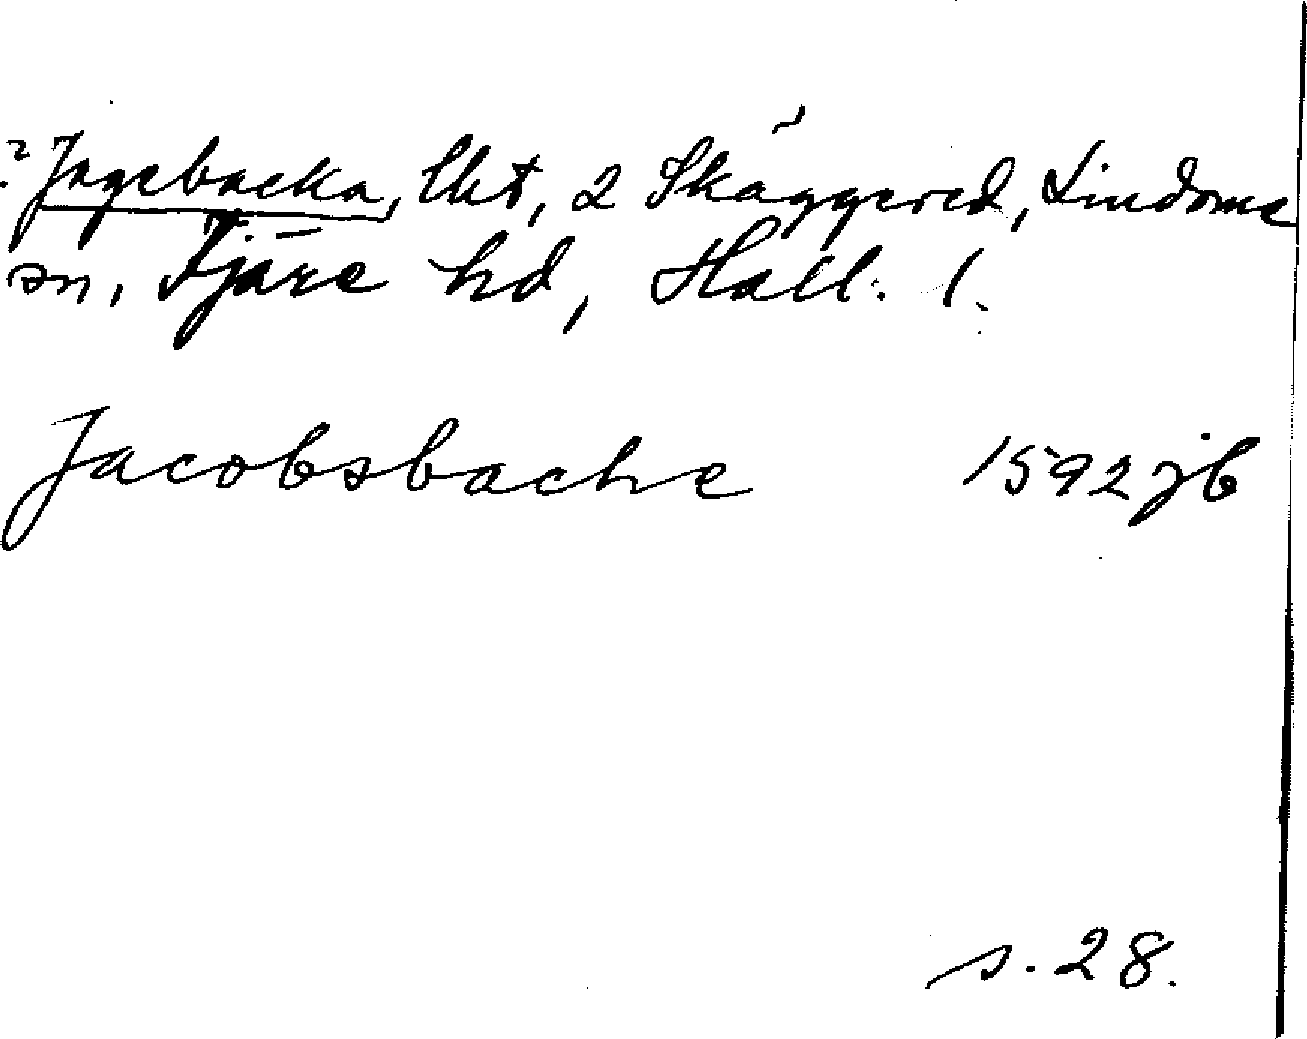 ? Ingebacka, lht, 2 Skäggered, Lindome
sn, Fjäre hd, Hall. l.
Jacobsbache 1592 jb
s. 28.